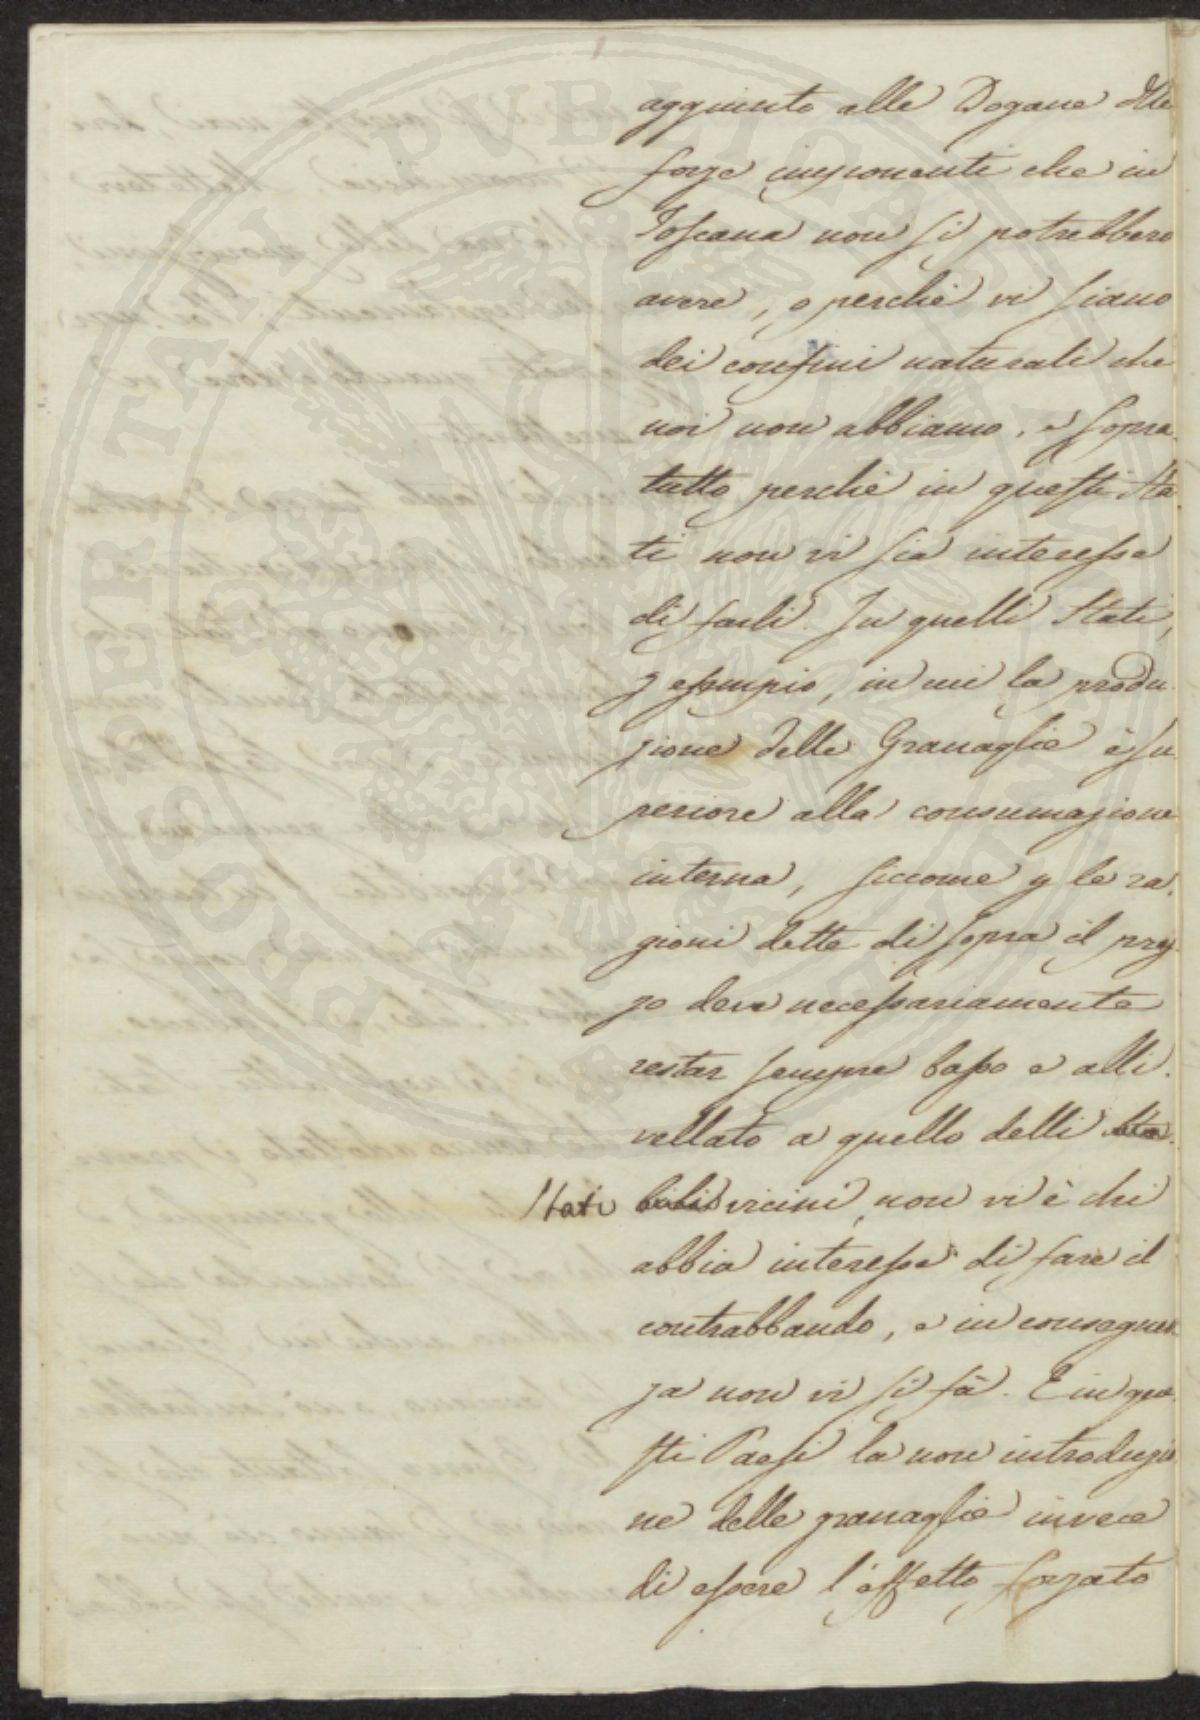 aggiunto alle Dogane delle
forze imponenti che in
Toscana non si potrebbero
avere, o perchè vi siano
dei confini naturali che
noi non abbiamo, e sopra
tutto perchè in questi Sta
ti non vi sia interesse
di farli. In quelli Stati,
p esempio, in cui la produ
zione delle Granaglie è su
periore alla consumazione
interna, siccome p le ra
gioni dette di sopra il prez
zo deve necessariamente
restar sempre basso e alli
vellato a quello delli Sta
Stati bili vicini, non vi è chi
abbia interesse di fare il
contrabbando, e in conseguen
za non vi si fà. E in que
sti Paesi la non introduzio
ne delle granaglie invece
di essere l'effetto forzato
PROSPERITATI PUBLICAE